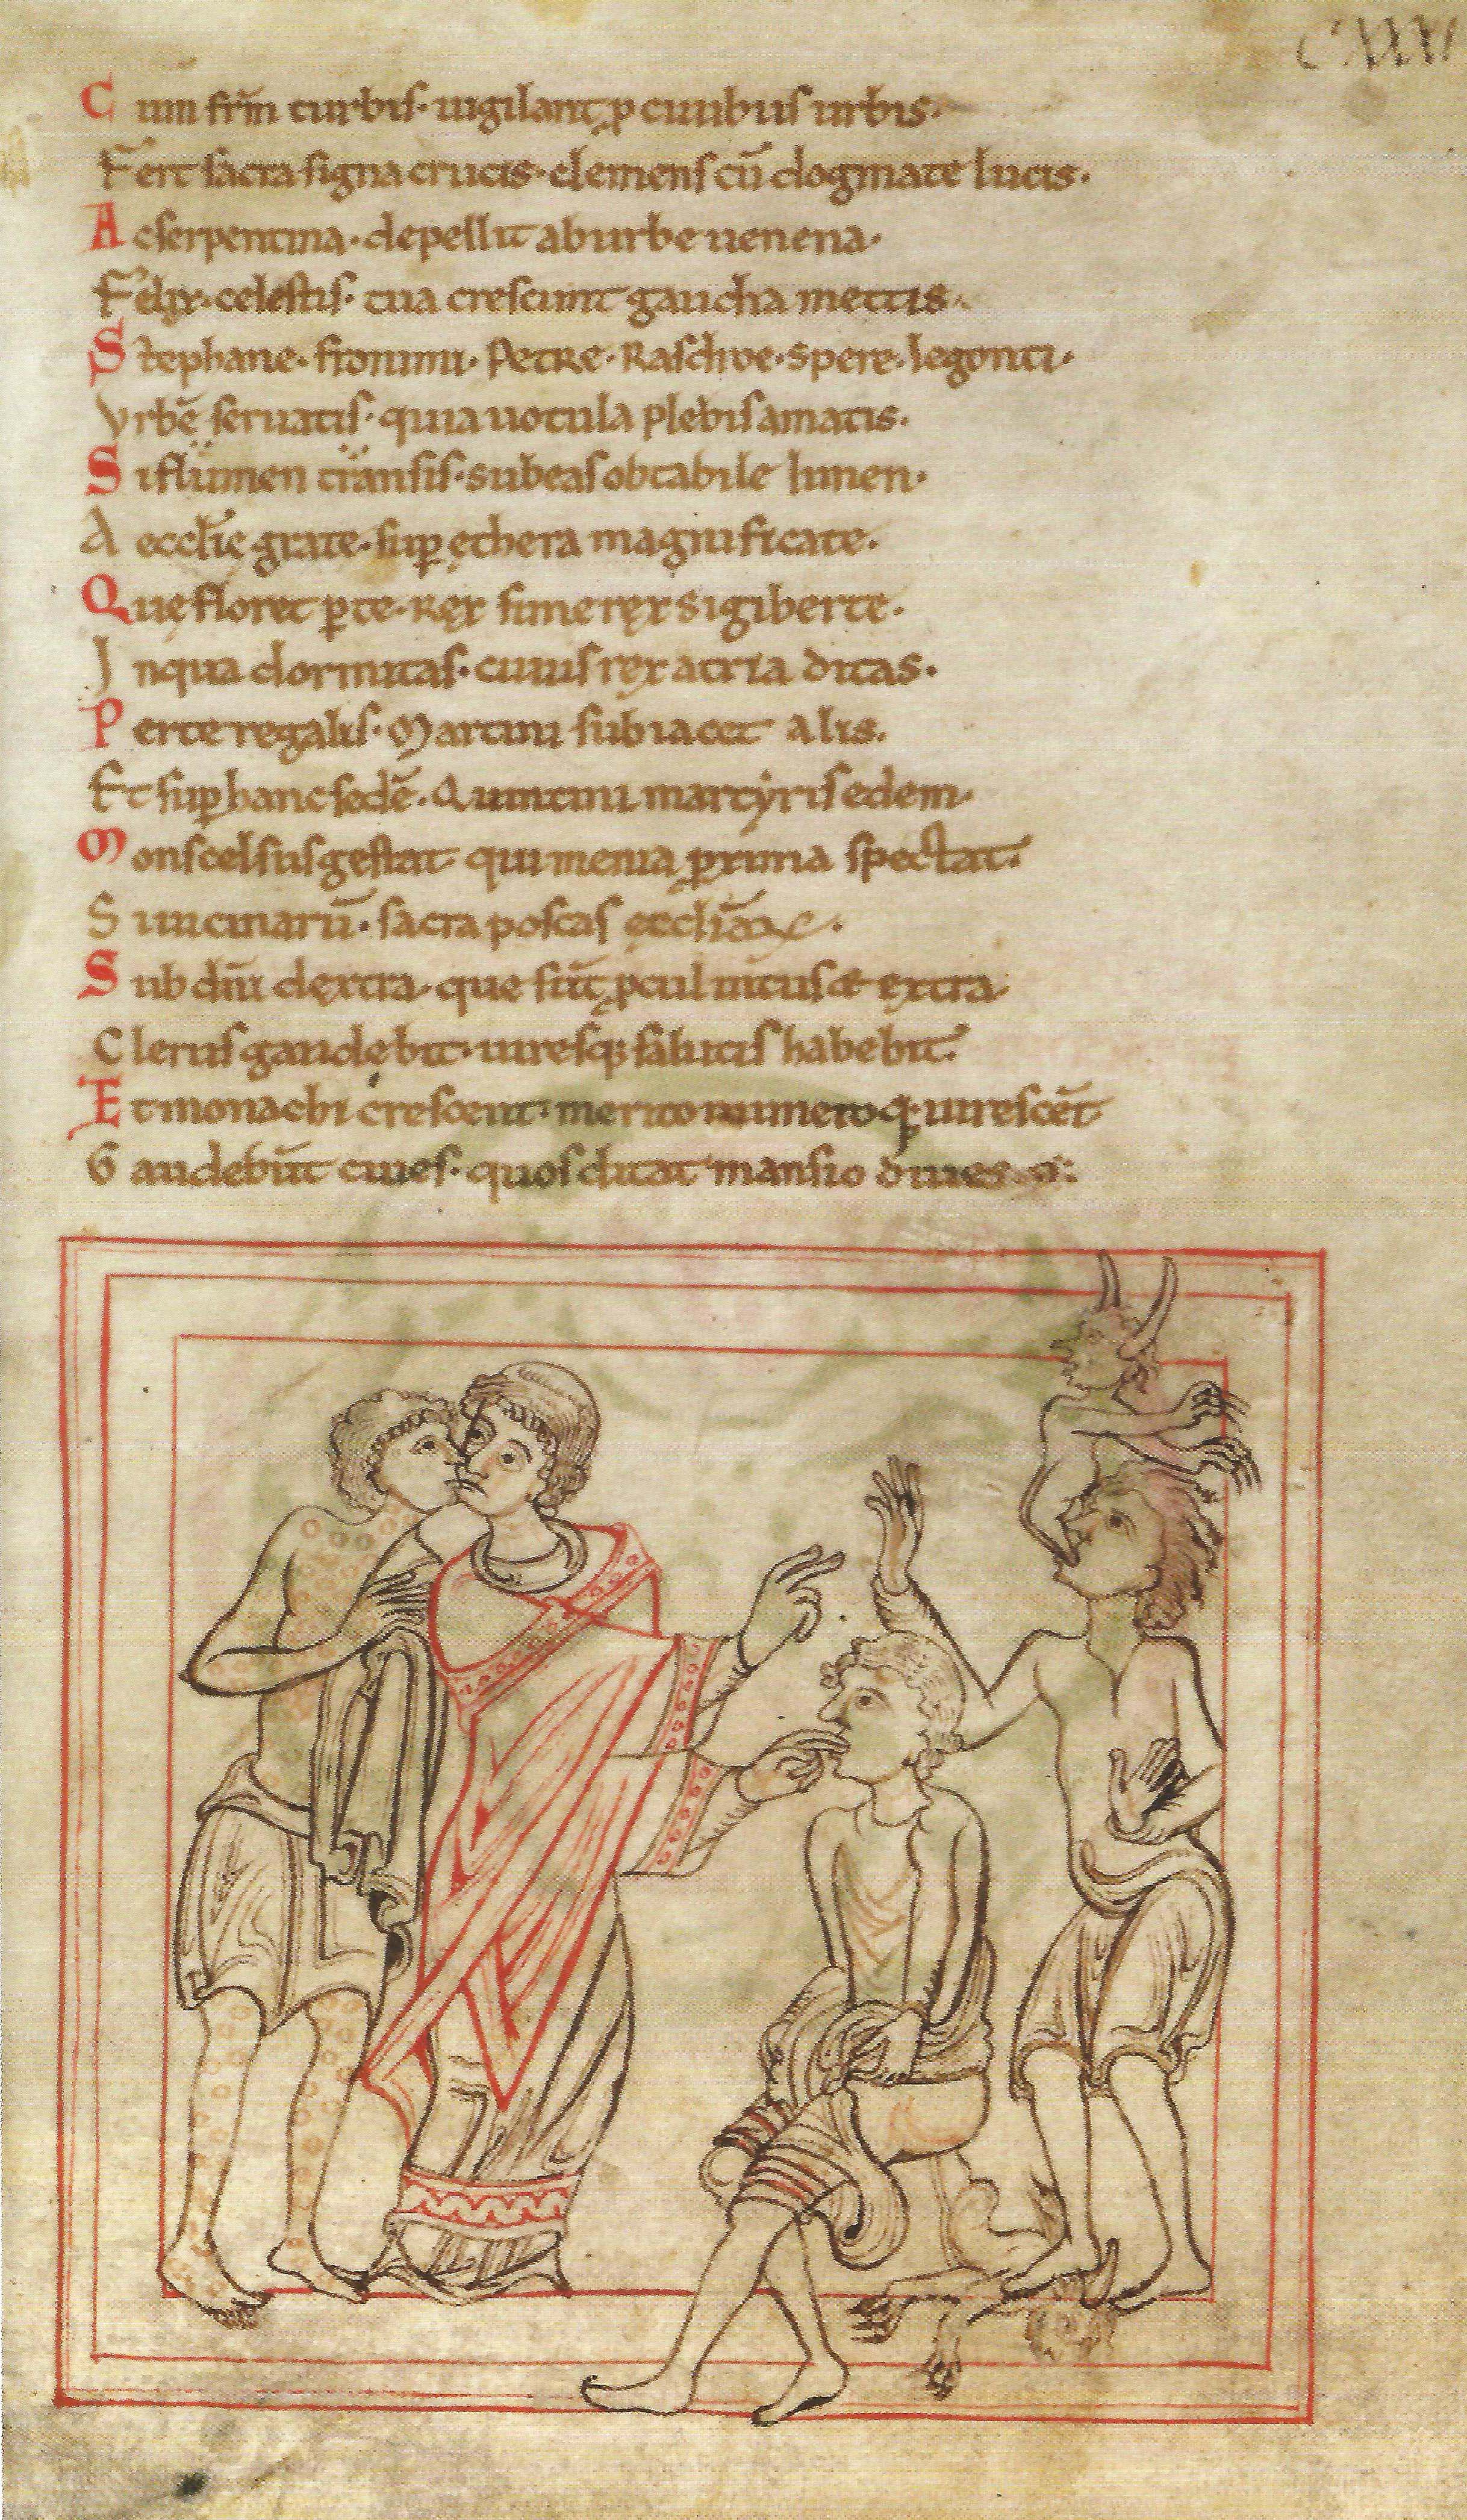 CXXXI
Cum fr̄m turbis· uigilant, ꝓ ciuibus urbis·
Fert sacra signa crucis· clemens cū dogmate lucis·
Ac serpentina· depellit ab urbe uenena·
Felix· celestis· tua crescunt gaudia mettis·
Stephane· fronimi· Petre· Raschoe· spere· legonti·
Vrbē seruatis· quia uotula plebis amatis·
Si flumen transis· subeas obtabile limen·
Aecclię gratę· sup ęthera magnificatę·
Quę floret p te· Rex sume rex sigiberte·
In qua dormitas· cuius rex atria ditas·
Per te regalis· Martini subiacet alis·
Et sup hanc sedē· Quintini martyris edem·
Mons celsus gestat qui menia ꝓxima spectat·
Si uicinarū· sacra poscas ęccliaꝝ·
Sub diui dextra· que sūt ꝓcul intus & extra
Clerus gaudebit· uiresq; salutis habebit·
Et monachi crescent· merito numeroq; uirescēt
Gaudebūt ciues· quos ditat mansio diues·